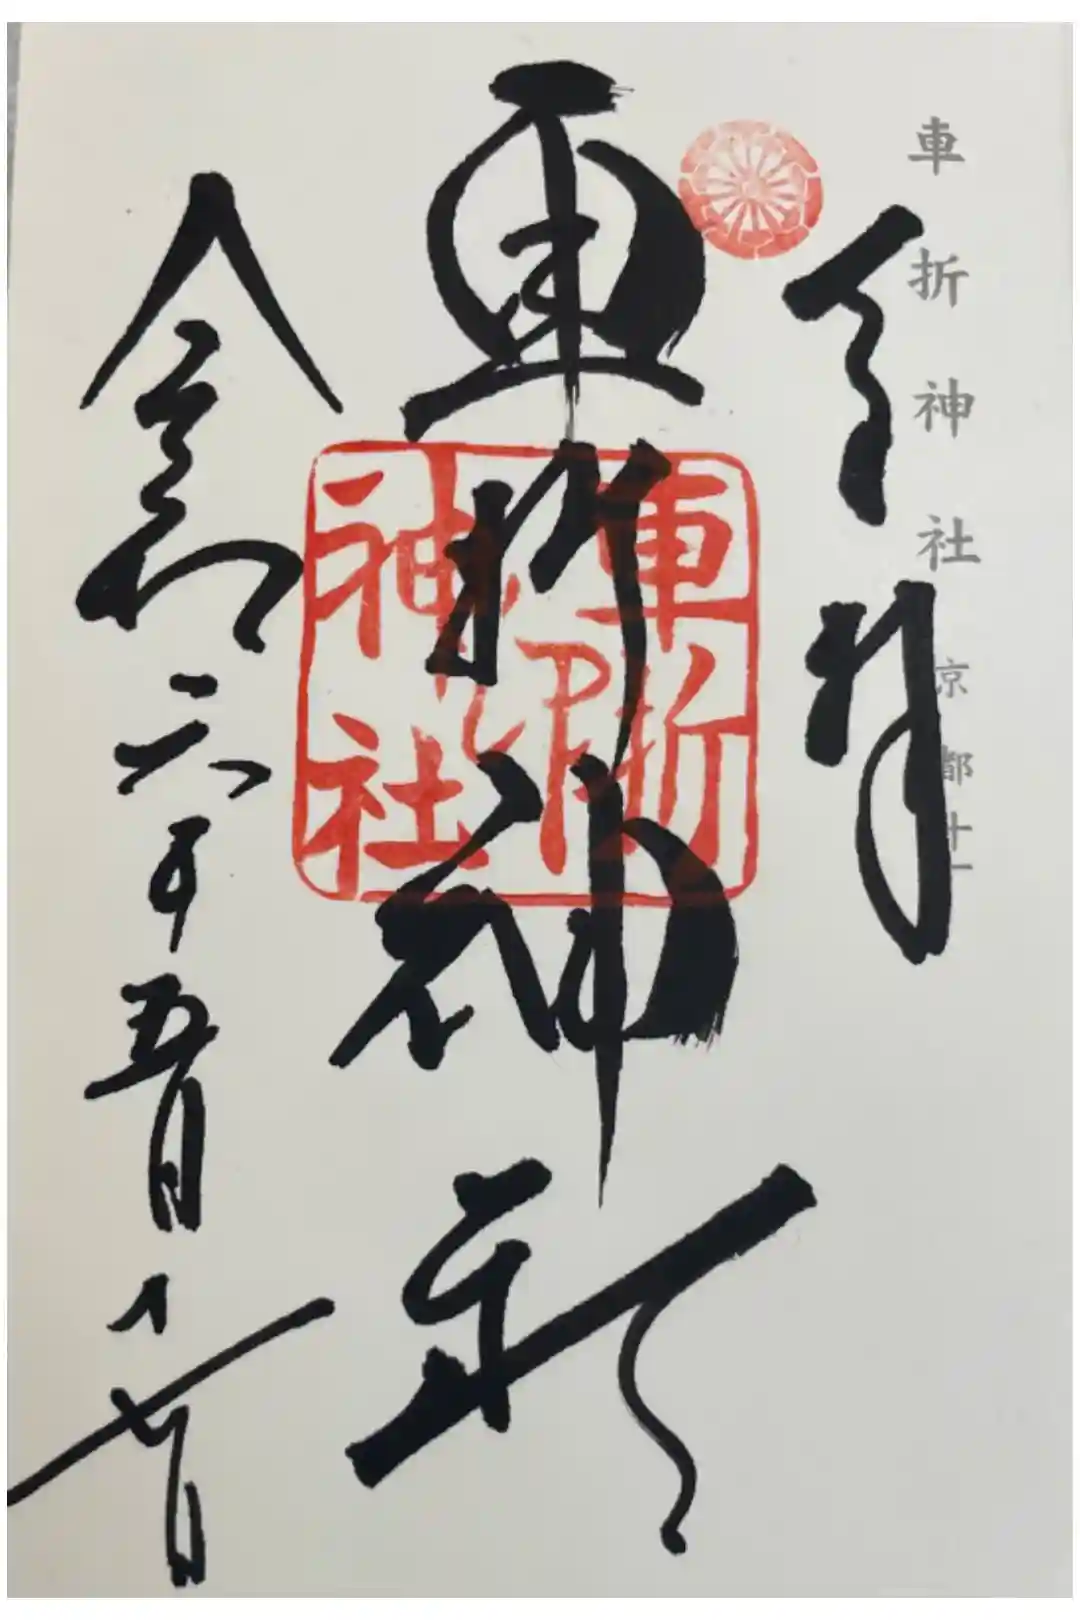 車折神社 京都十一
奉拝
車折神社
車折
神社
令和六年五月